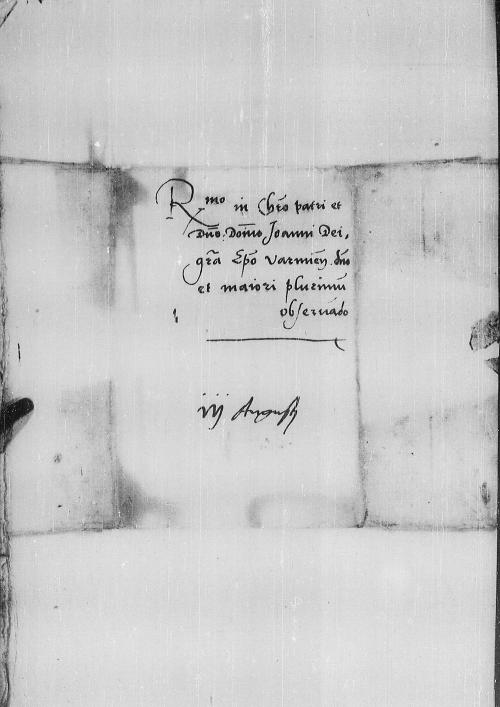 Rmo in Chro patri et
Dno. Domno Joanni Dei,
gra Epo Varmien. dno
et maiori plurimu
observado
iij Augusti